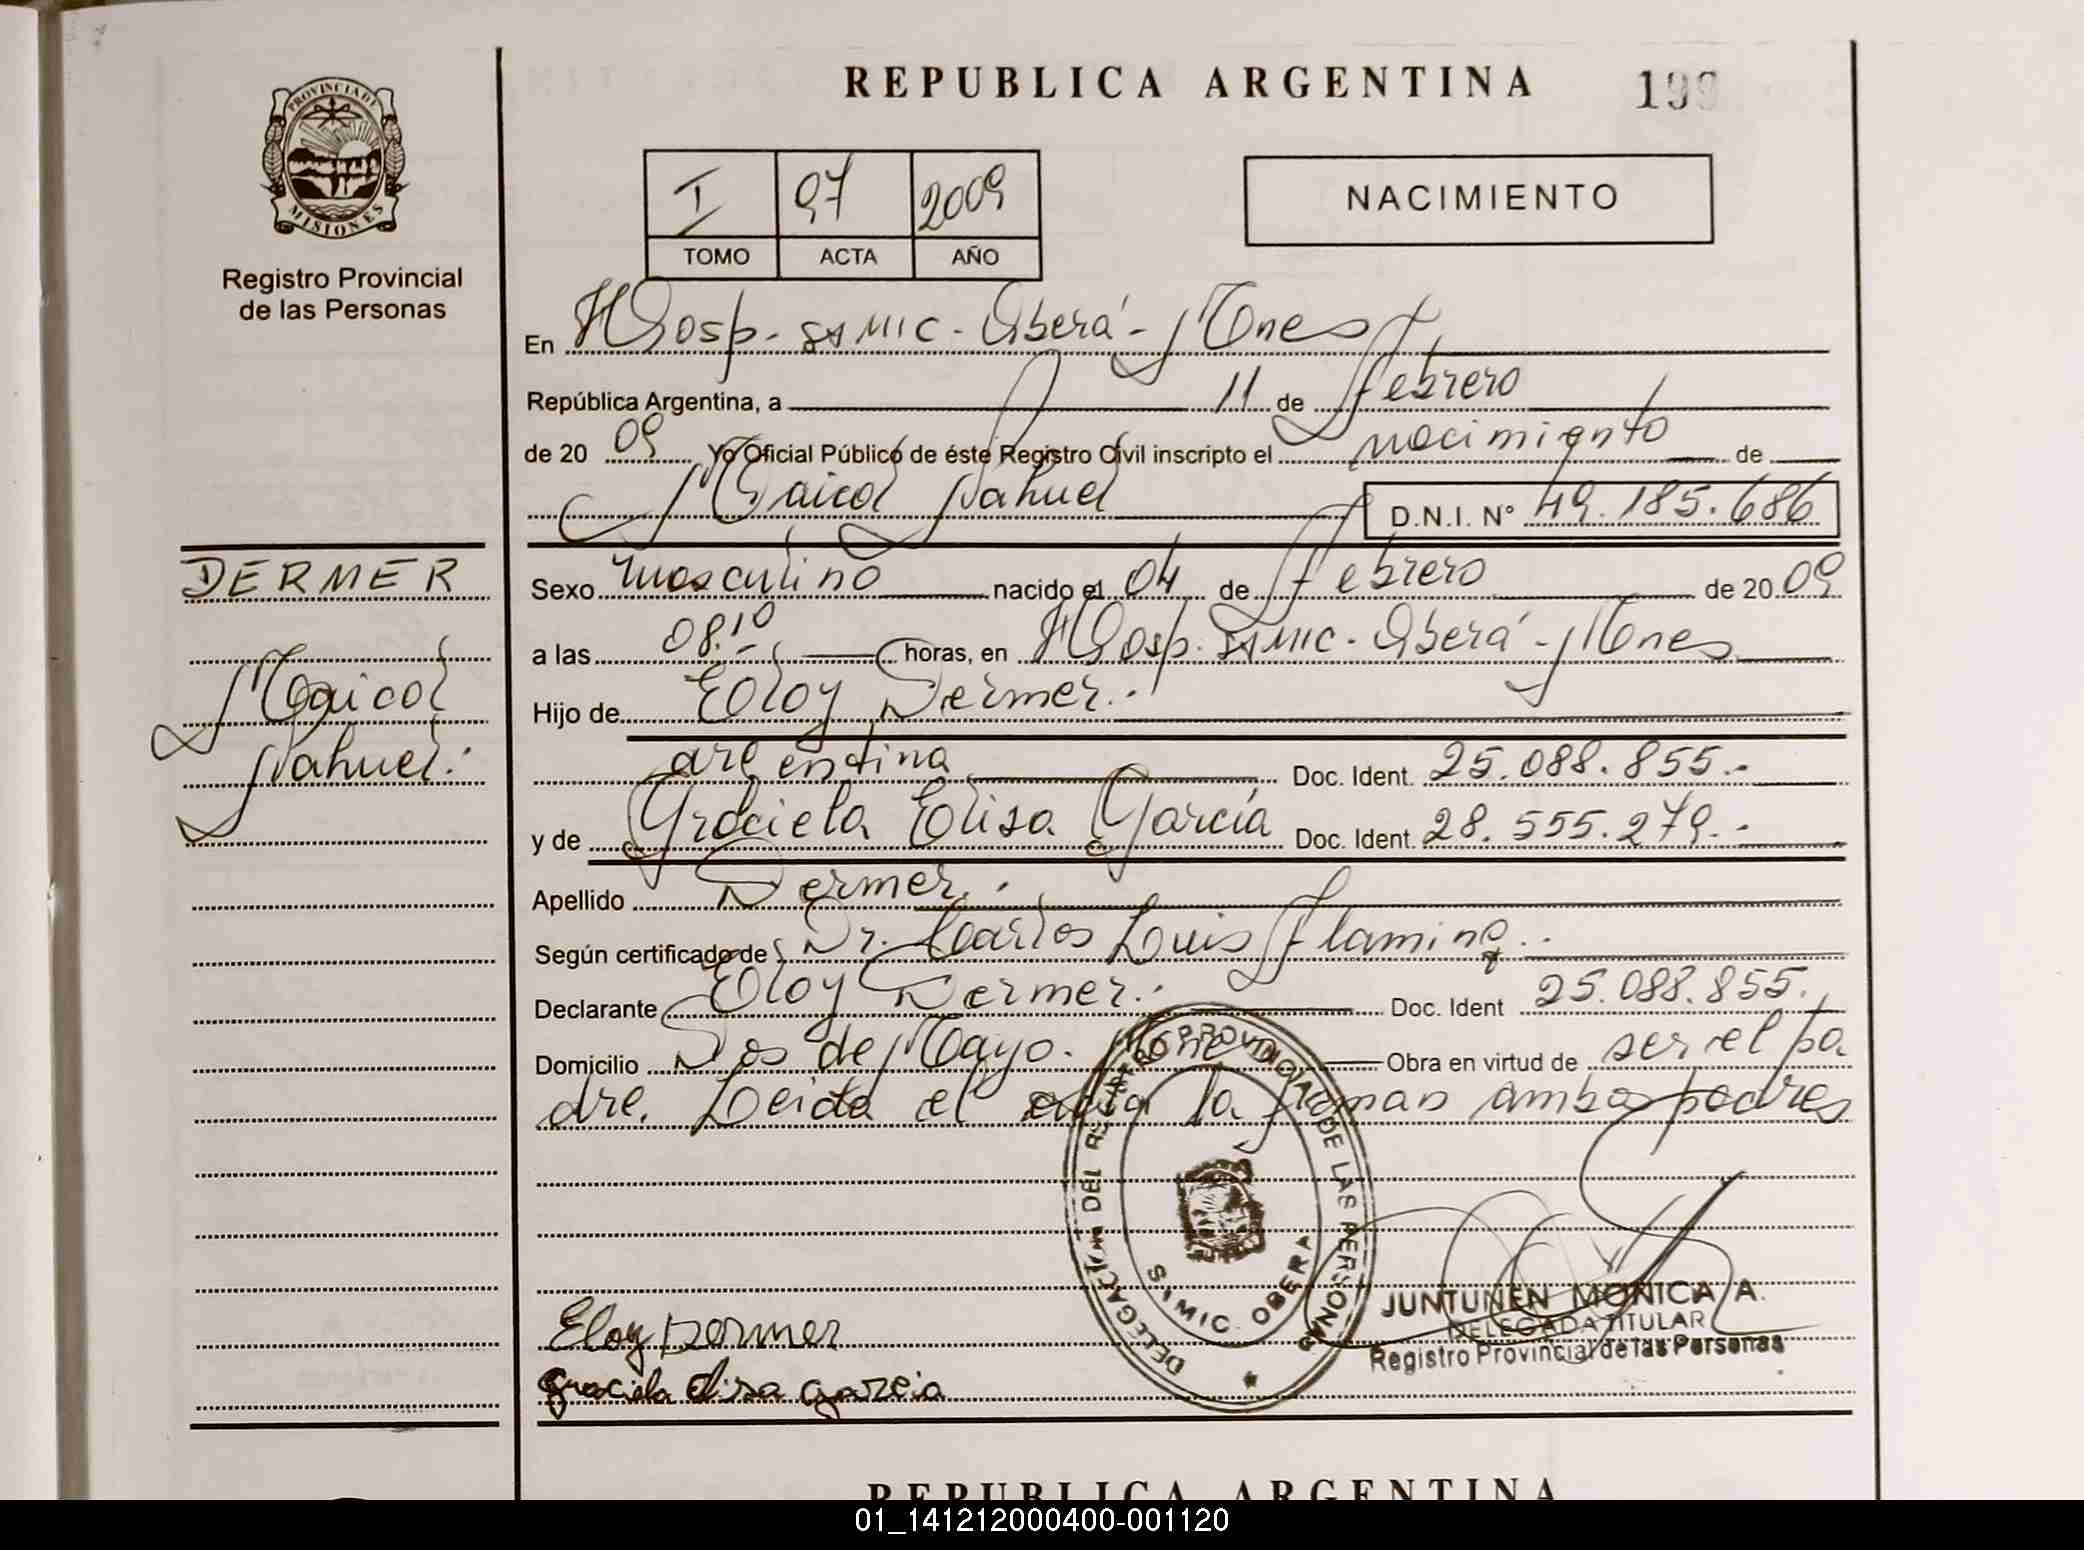 REPUBLICA ARGENTINA
199
PROVINCIA DE MISIONES
Registro Provincial
de las Personas
I 97 2009
TOMO ACTA AÑO
NACIMIENTO
En Hosp. SAMIC - Oberá - Mnes
República Argentina, a 11 de febrero
de 20 09 Yo Oficial Público de éste Registro Civil inscripto el nacimiento de
Maicol Nahuel D.N.I. N° 49.185.686
DERMER
Maicol
Nahuel.
Sexo masculino nacido el 04 de febrero de 20 09
a las 08.10 horas, en Hosp. SAMIC - Oberá - Mnes
Hijo de Eloy Dermer.
argentina Doc. Ident. 25.088.855.-
y de Graciela Elisa García Doc. Ident. 28.555.279.-
Apellido Dermer.
Según certificado de Dr. Carlos Luis Flaminq..
Declarante Eloy Dermer. Doc. Ident 25.088.855.
Domicilio Dos de Mayo. Mnes Obra en virtud de ser el pa
dre. Leida el acta la firman ambos padres
DELEGACIÓN DEL REGISTRO PROVINCIAL DE LAS PERSONAS
SAMIC. OBERA
Eloy Dermer
graciela elisa garcia
JUNTUNEN MONICA A.
DELEGADA TITULAR
Registro Provincial de las Personas
REPUBLICA ARGENTINA
01_141212000400-001120